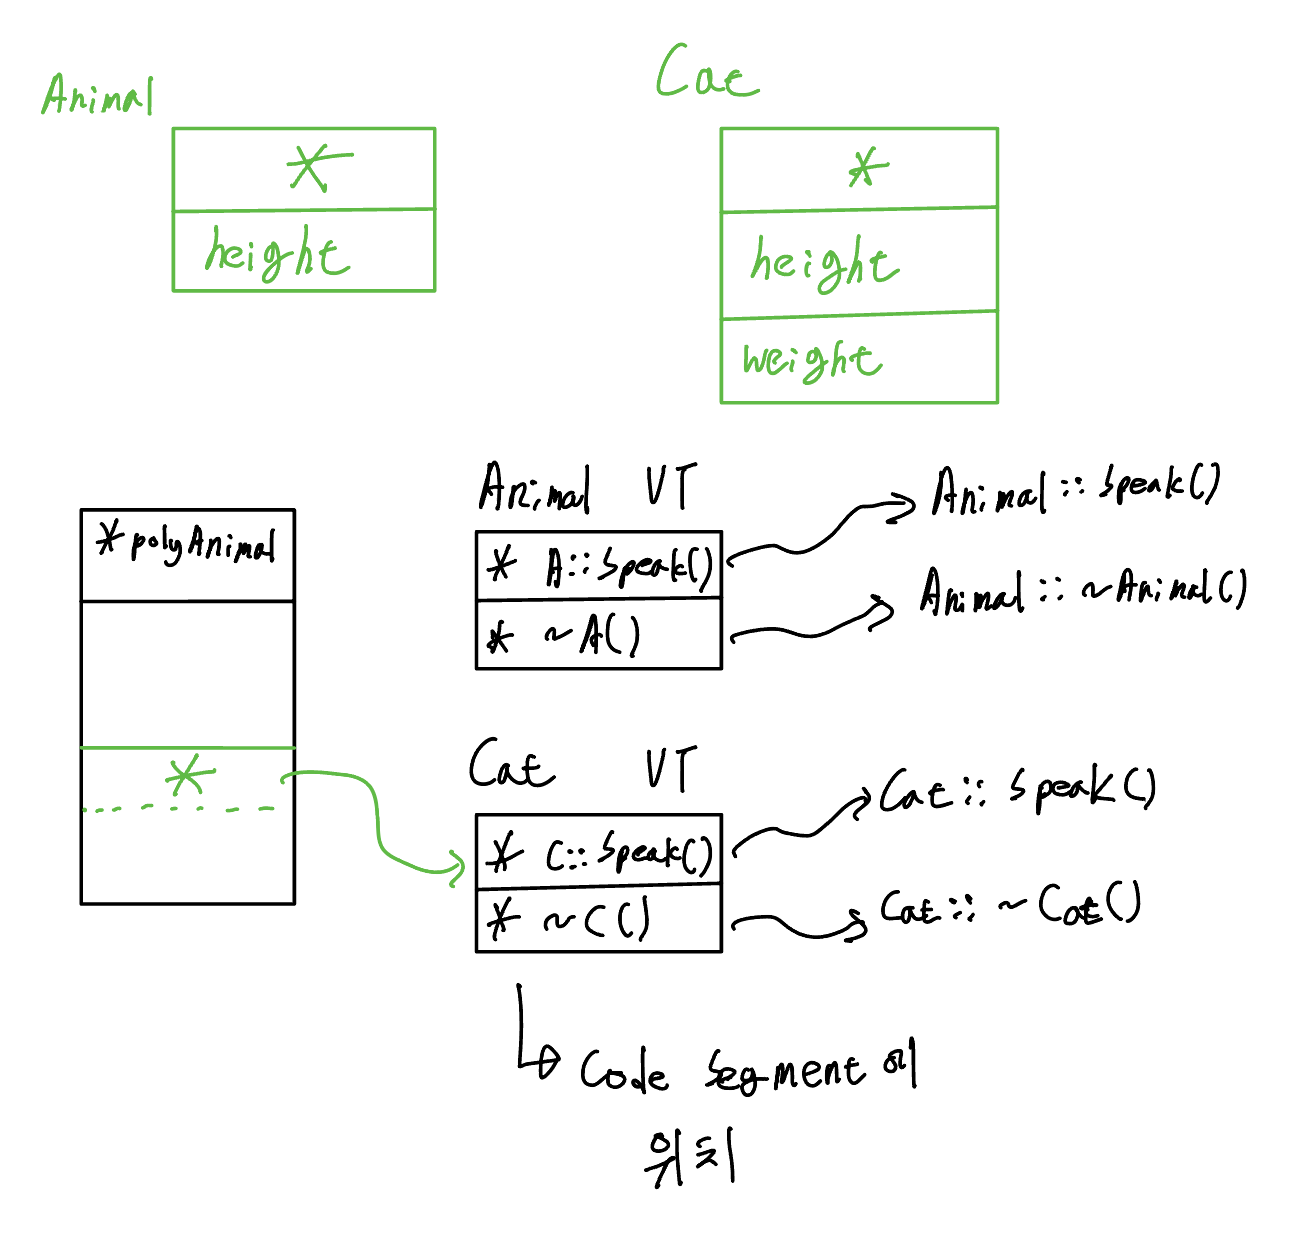 Animal
*
height
Cat
*
height
weight
*polyAnimal
*
Animal VT
* A::Speak()
* ~A()
Animal::Speak()
Animal::~Animal()
Cat VT
* C::Speak()
* ~C()
Cat::Speak()
Cat::~Cat()
Code Segment 에
위치